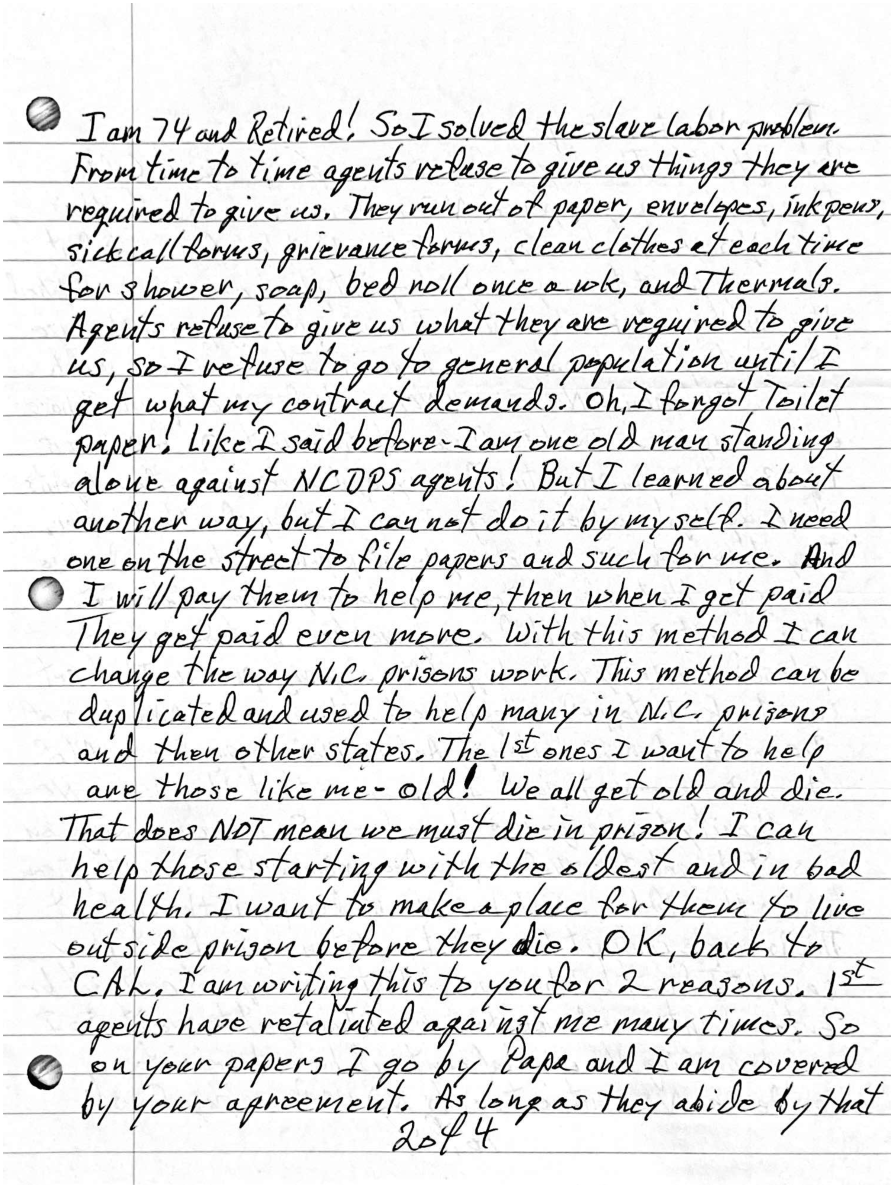 I am 74 and Retired! So I solved the slave labor problem.
From time to time agents refuse to give us things they are
required to give us. They run out of paper, envelopes, ink pens,
sick call forms, grievance forms, clean clothes at each time
for shower, soap, bed roll once a wk, and Thermals.
Agents refuse to give us what they are required to give
us, so I refuse to go to general population until I
get what my contract demands. Oh, I forgot Toilet
paper! Like I said before - I am one old man standing
alone against NCDPS agents! But I learned about
another way, but I can not do it by myself. I need
one on the street to file papers and such for me. And
I will pay them to help me, then when I get paid
They get paid even more. With this method I can
change the way N.C. prisons work. This method can be
duplicated and used to help many in N.C. prisons
and then other states. The 1st ones I want to help
are those like me - old! We all get old and die.
That does NOT mean we must die in prison! I can
help those starting with the oldest and in bad
health. I want to make a place for them to live
outside prison before they die. OK, back to
CAL. I am writing this to you for 2 reasons. 1st
agents have retaliated against me many times. So
on your papers I go by Papa and I am covered
by your agreement. As long as they abide by that
2 of 4